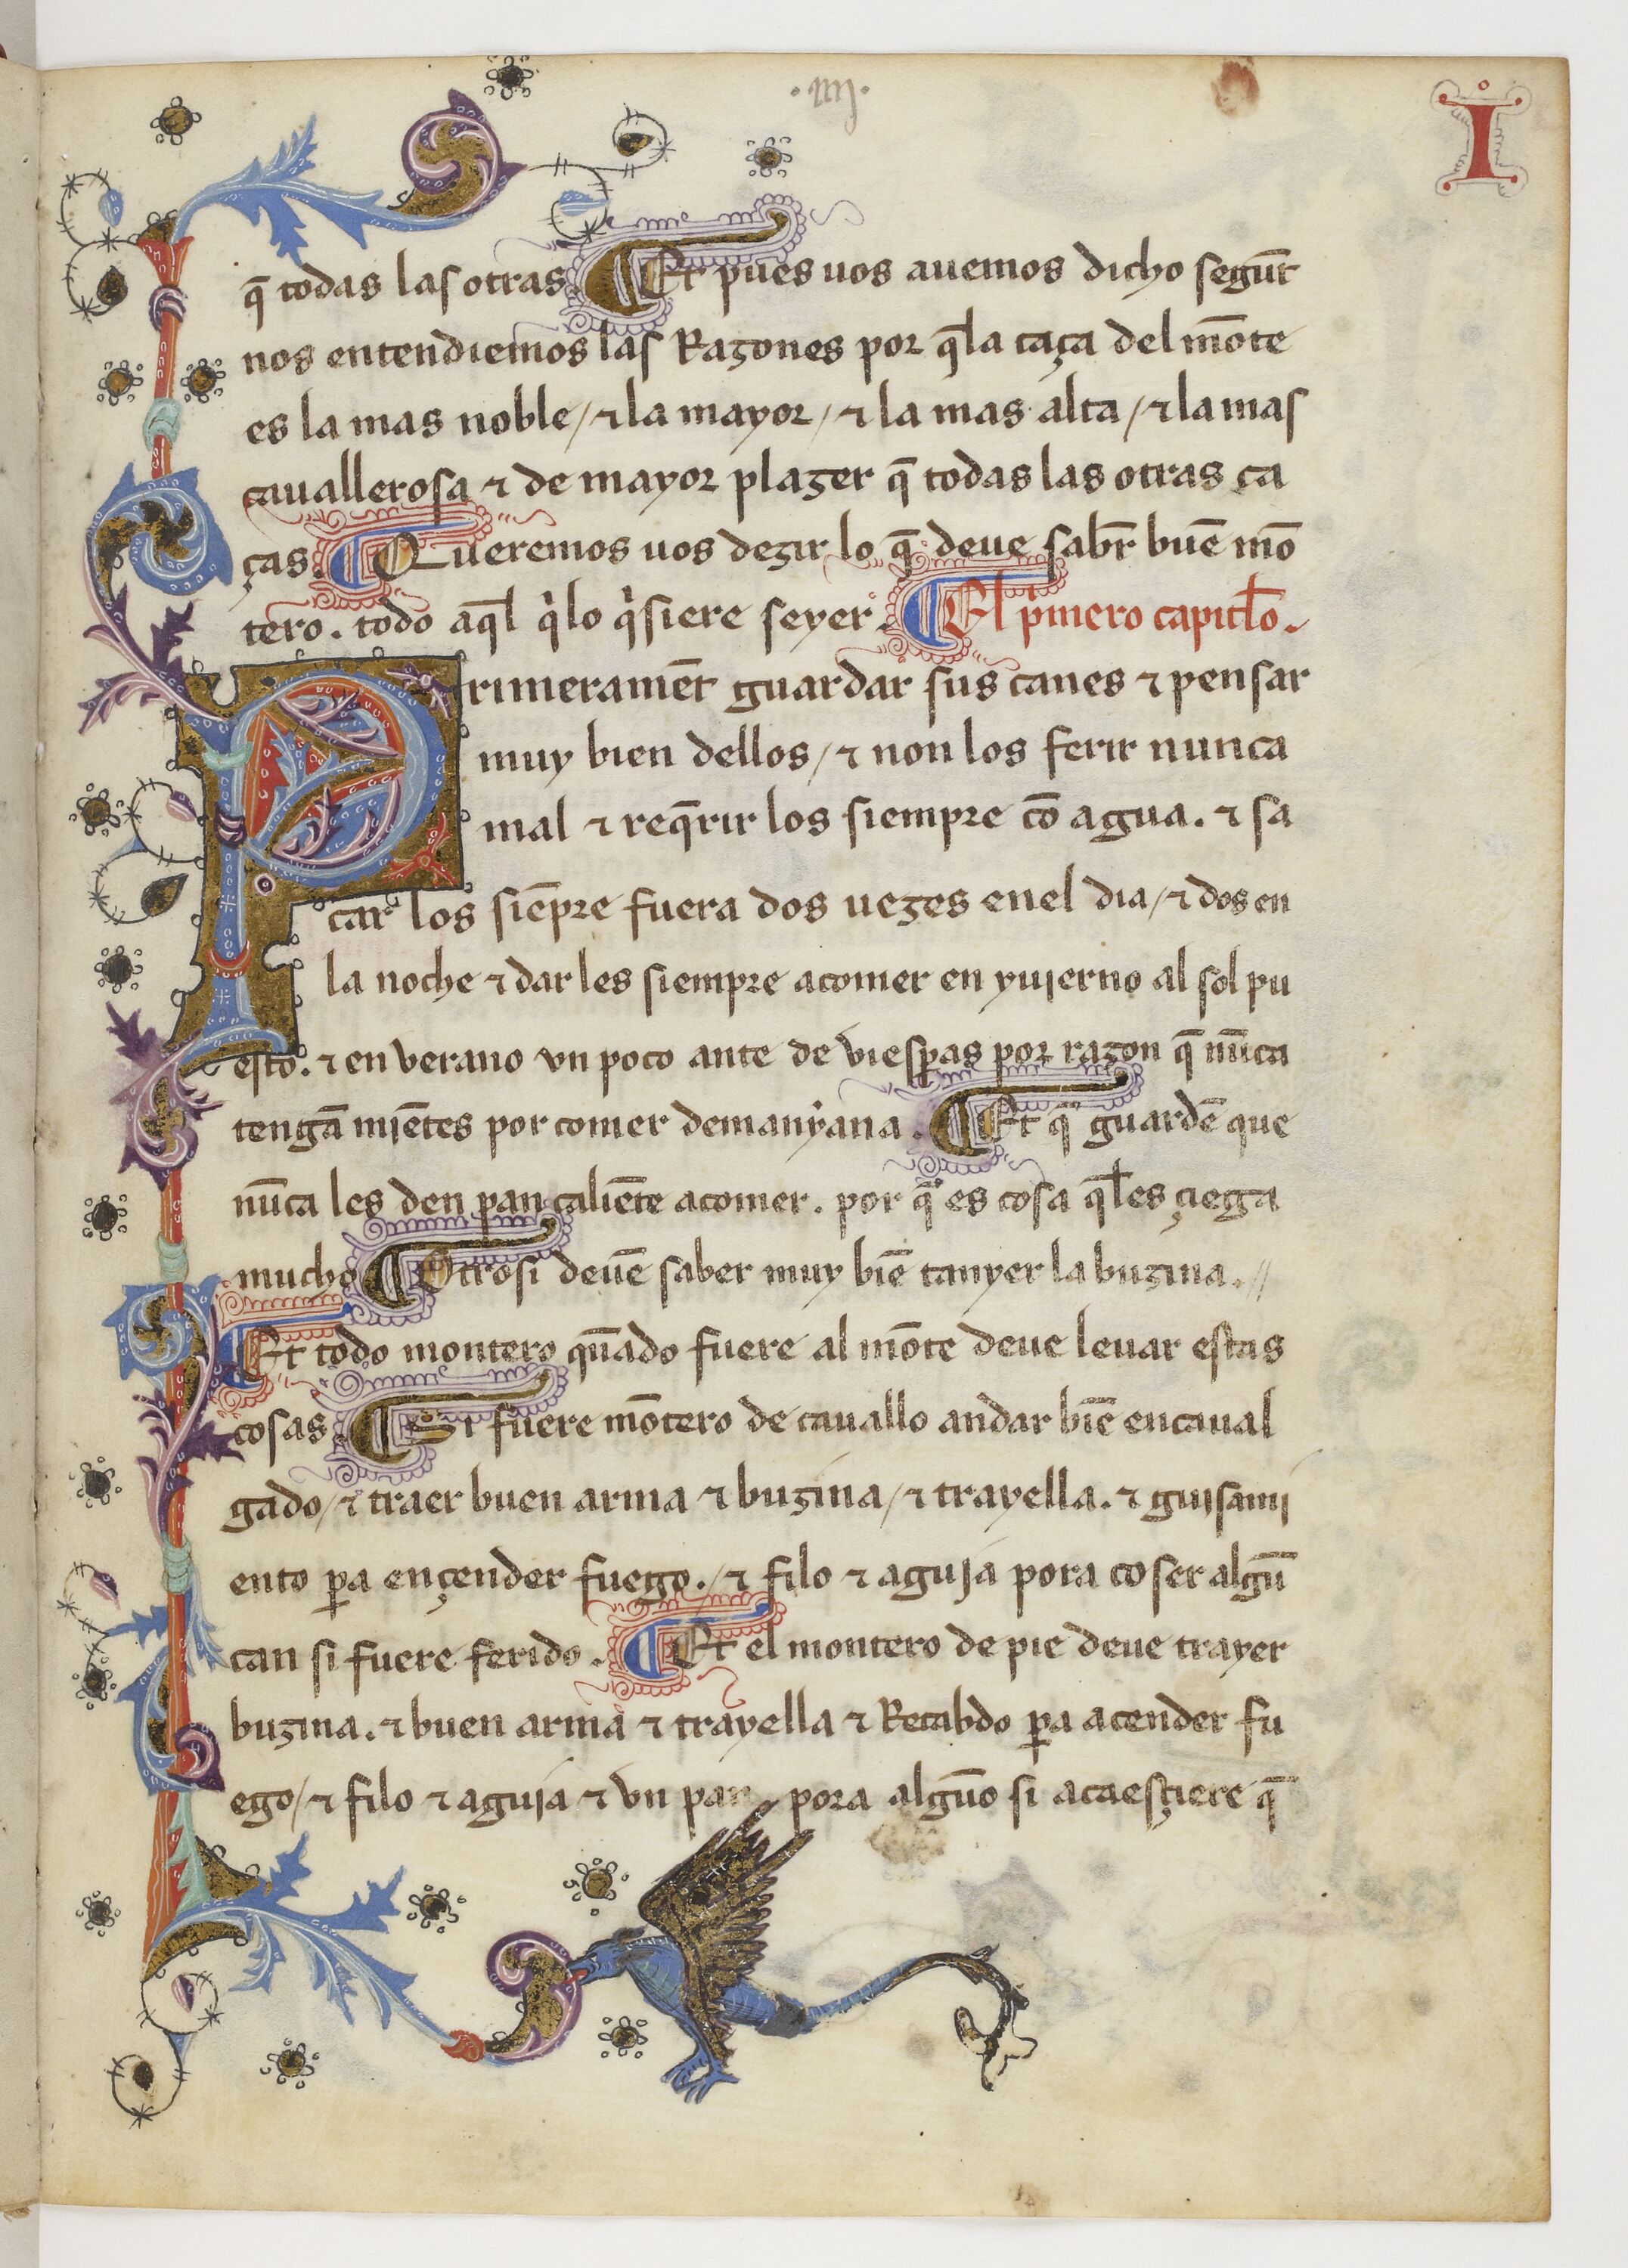 .iiij.
I
q̄ todas las otras. Et pues uos auemos dicho segūt
nos entendiemos las Razones por q̄l la caça del mōte
es la mas noble / ⁊ la mayor / ⁊ la mas alta / ⁊ la mas
cauallerosa ⁊ de mayor plazer q̄ todas las otras ca
ças. Queremos uos dezir lo q̄ deue sabr̄ buē mō
tero. todo aq̄l qⁱ lo qⁱsiere seyer. El pⁱmero capitl̄o.
Primeramēt guardar sus canes ⁊ pensar
muy bien dellos / ⁊ non los ferir nunca
mal ⁊ req̄rir los siempre cō agua. ⁊ sa
car los siēpre fuera dos uezes enel dia / ⁊ dos en
la noche ⁊ dar les siempre acomer en yuierno al sol pu
esto. ⁊ en verano vn poco ante de viesꝑas por razon q̄ nūca
tengā miētes por comer demanyana. Et q̄ guardē que
nūca les den pan caliēte acomer. por q̄ es cosa q̄les çiega
mucho Otrosi deuē saber muy biē tanyer la buzina. //
Et todo montero quādo fuere al mōte deue leuar estas
cosas. Si fuere mōtero de cauallo andar biē encaual
gado / ⁊ traer buen arma ⁊ buzina / ⁊ trayella. ⁊ guisami
ento ꝑa ençender fuego. / ⁊ filo ⁊ aguja pora coser algū
can si fuere ferido. Et el montero de pie deue trayer
buzina. ⁊ buen arma ⁊ trayella ⁊ Recabdo ꝑa acender fu
ego / ⁊ filo ⁊ aguja ⁊ vn pan pora algūo si acaesçiere q̄